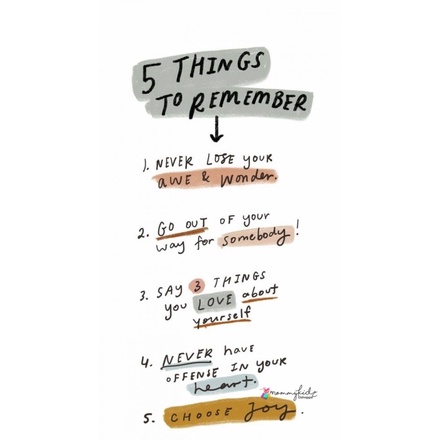 5 THINGS
TO REMEMBER
1. NEVER LOSE YOUR
AWE & Wonder.
2. GO OUT OF your
way for somebody!
3. SAY 3 THINGS
you LOVE about
yourself
4. NEVER have
OFFENSE IN YOUR
heart.
mommykidz
5. CHOOSE JOY.